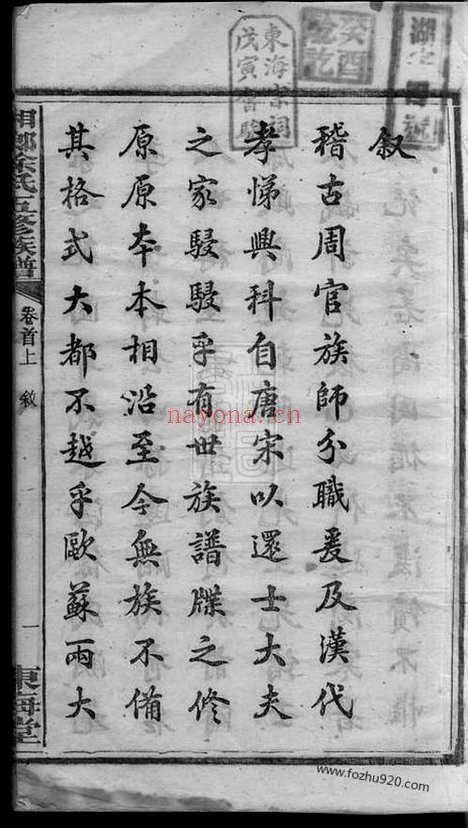 叙
稽古周官族師分職爰及漢代
孝悌興科自唐宋以還士大夫
之家駸駸乎有世族譜牒之修
原原本本相沿至今無族不備
其格式大都不越乎歐蘇兩大
湘鄉徐氏五修族譜
卷首上 敘
一
東海堂
東海宗祠
戊寅
癸酉
nayona.cn
www.fozhu920.com